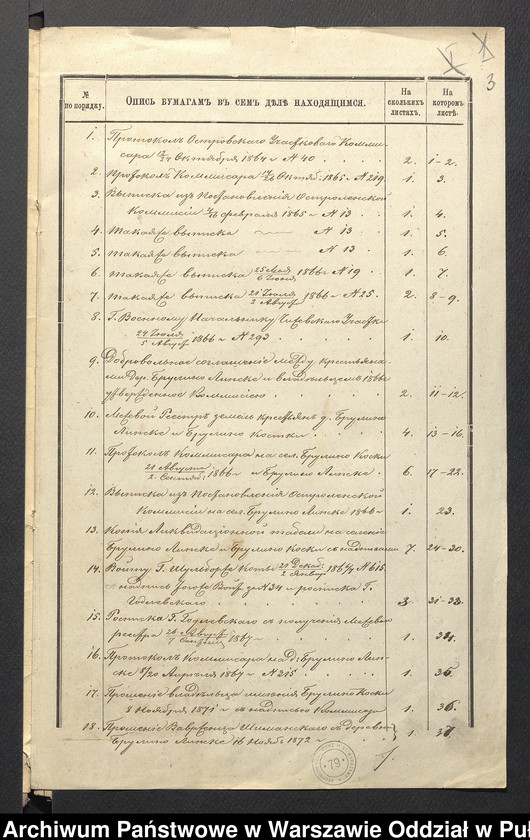 3
№ по порядку.
Опись бумагамъ въ семъ дѣлѣ находящимся.
На сколькихъ листахъ.
На которомъ листѣ.
1. Протоколъ Островскаго Участковаго Комми-
сара Октября 1864 г № 40 2. 1-2.
2. Протоколъ Коммисара Октяб: 1865 г № 219 1. 3.
3. Выписка изъ Постановленія Остроленской
Коммисіи февраля 1865 г № 13 1. 4.
4. Такая же выписка № 13 1. 5.
5. Такая же выписка № 13 1. 6.
6. Такая же выписка 25 Мая / 6 Іюня 1866 г № 19 1. 7.
7. Такая же выписка 21 Іюля / 2 Август 1866 г № 25. 2. 8-9.
8. Г. Военному Начальнику Участка
24 Іюля / 5 Август 1866 г № 293 1. 10.
9. Добровольное соглашеніе между крестьяна-
ми дер. Брулино Липске и владѣльцемъ 1866 г
утвержденное Коммисіею 2. 11-12.
10. Межевой Реестръ земель крестьянъ д. Брулино
Липске и Брулино Коски 4. 13-16.
11. Протоколъ Коммисара на сел. Брулино Коски
21 Августа / 2 Сентяб: 1866 г и Брулино Липске 6. 17-22.
12. Выписка изъ Постановленія Остроленской
Коммисіи на сел. Брулино Липске 1866 г 1. 23.
13. Копія Ликвидаціонной табели на селенія
Брулино Липске и Брулино Коски съ надписями 7. 24-30.
14. Войту Г. Шульборже Коты 21 Декаб: / 2 Январ 1866/7 № 615
надпись Войт за № 34 и росписка Г.
Годлевскаго 31-33.
15. Росписка Г. Годлевскаго о полученіи Межеваго
реестра 26 Август / 7 1867 г 1. 34.
16. Протоколъ Коммисара на д: Брулино Лип-
ске 8/20 Апреля 1867 г № 215 1. 35.
17. Прошеніе владѣльца имѣнія Брулино Коски
8 Ноября 1871 г съ надписью Коммисара 1. 36.
18. Прошеніе Вавржинца Шиманскаго съ деревни
Брулино Липске 16 Ноябр 1872 г 1. 37.
79
Archiwum Państwowe w Warszawie Oddział w Pu